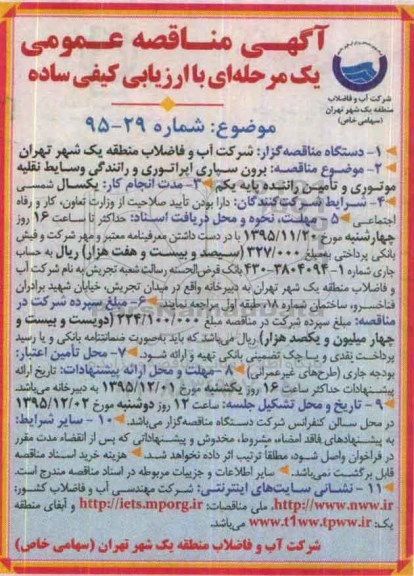 آگهی مناقصه عمومی
یک مرحله‌ای با ارزیابی کیفی ساده
شرکت آب و فاضلاب
منطقه یک شهر تهران
(سهامی خاص)
موضوع: شماره ۲۹-۹۵
۱- دستگاه مناقصه‌گزار: شرکت آب و فاضلاب منطقه یک شهر تهران
۲- موضوع مناقصه: برون سپاری اپراتوری و رانندگی وسایط نقلیه
موتوری و تأمین راننده پایه یکم ۳- مدت انجام کار: یکسال شمسی
۴- شرایط شرکت‌کنندگان: دارا بودن تأیید صلاحیت از وزارت تعاون، کار و رفاه
اجتماعی ۵- مهلت، نحوه و محل دریافت اسناد: حداکثر تا ساعت ۱۶ روز
چهارشنبه مورخ ۱۳۹۵/۱۱/۲۰ با در دست داشتن معرفینامه معتبر و مهر شرکت و فیش
بانکی پرداختی به‌مبلغ ۳۲۷/۰۰۰ (سیصد و بیست و هفت هزار) ریال به حساب
جاری شماره ۱-۳۸۰۴۰۹۴-۴۳۰ بانک قرض‌الحسنه رسالت شعبه تجریش به نام شرکت آب
و فاضلاب منطقه یک شهر تهران به دبیرخانه واقع در میدان تجریش، خیابان شهید برادران
فناخسرو، ساختمان شماره ۱۸، طبقه اول مراجعه نمایند. ۶- مبلغ سپرده شرکت در
مناقصه: مبلغ سپرده شرکت در مناقصه مبلغ ۲۲۴/۱۰۰/۰۰۰ (دویست و بیست و
چهار میلیون و یکصد هزار) ریال می‌باشد که باید به‌صورت ضمانتنامه بانکی و یا رسید
پرداخت نقدی و یا چک تضمینی بانکی تهیه و ارائه شود. ۷- محل تأمین اعتبار:
بودجه جاری (طرح‌های غیرعمرانی) ۸- مهلت و محل ارائه پیشنهادات: تاریخ ارائه
پیشنهادات حداکثر ساعت ۱۶ روز یکشنبه مورخ ۱۳۹۵/۱۲/۰۱ به دبیرخانه می‌باشد.
۹- تاریخ و محل تشکیل جلسه: ساعت ۱۲ روز دوشنبه مورخ ۱۳۹۵/۱۲/۰۲
در محل سالن کنفرانس شرکت دستگاه مناقصه‌گزار می‌باشد. ۱۰- سایر شرایط:
به پیشنهادهای فاقد امضاء، مشروط، مخدوش و پیشنهاداتی که پس از انقضاء مدت مقرر
در فراخوان واصل شود، مطلقاً ترتیب اثر داده نخواهد شد. هزینه خرید اسناد مناقصه
قابل برگشت نمی‌باشد. سایر اطلاعات و جزییات مربوطه در اسناد مناقصه مندرج است.
۱۱- نشانی سایت‌های اینترنتی: شرکت مهندسی آب و فاضلاب کشور:
http://www.nww.ir، ملی مناقصات: http://iets.mporg.ir و آبفای منطقه
یک: www.t1ww.tpww.ir می‌باشد.
شرکت آب و فاضلاب منطقه یک شهر تهران (سهامی خاص)